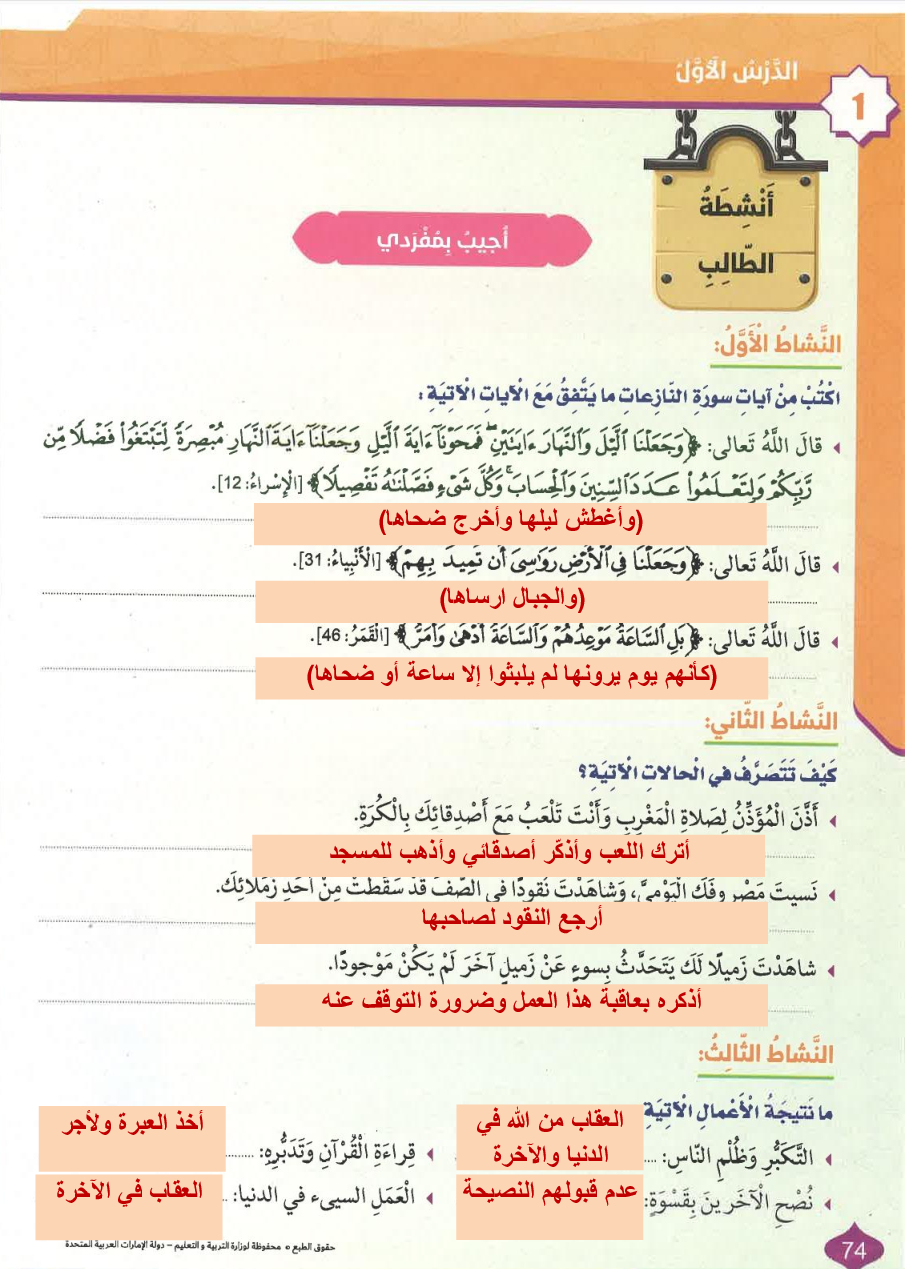 الدَّرْسُ الْأَوَّلُ
1
أَنْشِطَةُ
الطّالِبِ
أُجيبُ بِمُفْرَدي
النَّشاطُ الْأَوَّلُ:
اكْتُبْ مِنْ آياتِ سورَةِ النّازِعاتِ ما يَتَّفِقُ مَعَ الْآياتِ الْآتِيَةِ:
قالَ اللَّهُ تَعالى: ﴿وَجَعَلْنَا ٱلَّيْلَ وَٱلنَّهَارَ ءَايَتَيْنِ ۖ فَمَحَوْنَآ ءَايَةَ ٱلَّيْلِ وَجَعَلْنَآ ءَايَةَ ٱلنَّهَارِ مُبْصِرَةً لِّتَبْتَغُوا۟ فَضْلًا مِّن
رَّبِّكُمْ وَلِتَعْلَمُوا۟ عَدَدَ ٱلسِّنِينَ وَٱلْحِسَابَ ۚ وَكُلَّ شَىْءٍ فَصَّلْنَٰهُ تَفْصِيلًا﴾ [الْإِسْراءُ: 12].
(وأغطش ليلها وأخرج ضحاها)
قالَ اللَّهُ تَعالى: ﴿وَجَعَلْنَا فِى ٱلْأَرْضِ رَوَٰسِىَ أَن تَمِيدَ بِهِمْ﴾ [الْأَنْبِياءُ: 31].
(والجبال ارساها)
قالَ اللَّهُ تَعالى: ﴿بَلِ ٱلسَّاعَةُ مَوْعِدُهُمْ وَٱلسَّاعَةُ أَدْهَىٰ وَأَمَرُّ﴾ [الْقَمَرُ: 46].
(كأنهم يوم يرونها لم يلبثوا إلا ساعة أو ضحاها)
النَّشاطُ الثّاني:
كَيْفَ تَتَصَرَّفُ في الْحالاتِ الْآتِيَةِ؟
أَذَّنَ الْمُؤَذِّنُ لِصَلاةِ الْمَغْرِبِ وَأَنْتَ تَلْعَبُ مَعَ أَصْدِقائِكَ بِالْكُرَةِ.
أترك اللعب وأذكّر أصدقائي وأذهب للمسجد
نَسيتَ مَصْروفَكَ الْيَوْمِيَّ، وَشاهَدْتَ نُقودًا في الصَّفِّ قَدْ سَقَطَتْ مِنْ أَحَدِ زُمَلائِكَ.
أرجع النقود لصاحبها
شاهَدْتَ زَميلًا لَكَ يَتَحَدَّثُ بِسوءٍ عَنْ زَميلٍ آخَرَ لَمْ يَكُنْ مَوْجودًا.
أذكره بعاقبة هذا العمل وضرورة التوقف عنه
النَّشاطُ الثّالِثُ:
ما نَتيجَةُ الْأَعْمالِ الْآتِيَةِ
التَّكَبُّرِ وَظُلْمِ النّاسِ: العقاب من الله في الدنيا والآخرة
قِراءَةِ الْقُرْآنِ وَتَدَبُّرِهِ: أخذ العبرة ولأجر
نُصْحِ الْآخَرينَ بِقَسْوَةٍ: عدم قبولهم النصيحة
الْعَمَلِ السيىء في الدنيا: العقاب في الآخرة
حقوق الطبع © محفوظة لوزارة التربية والتعليم – دولة الإمارات العربية المتحدة
74